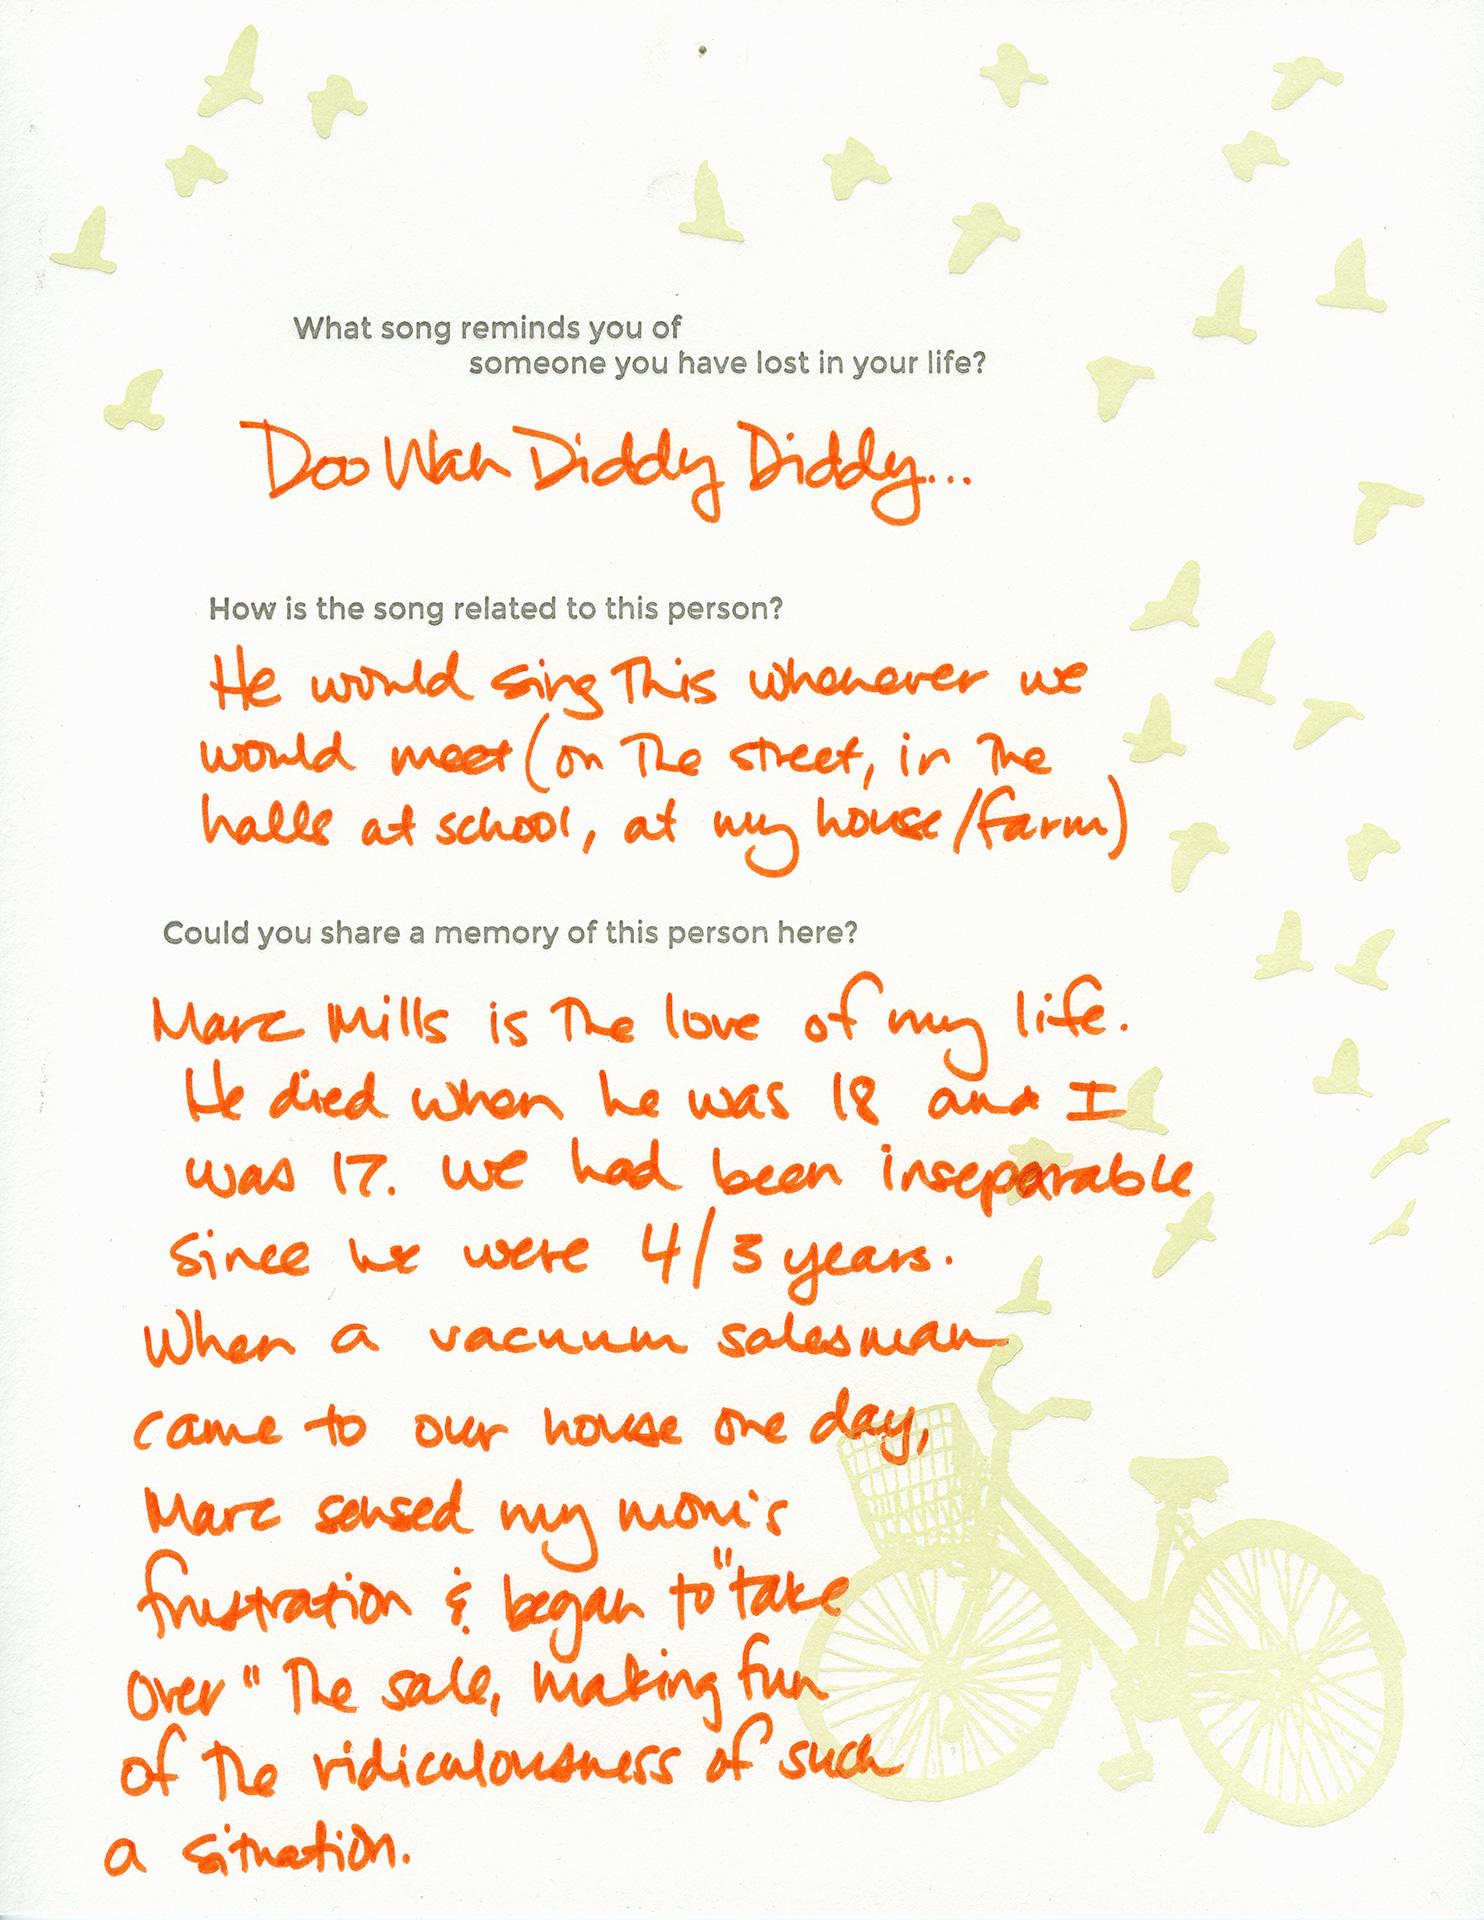 What song reminds you of
someone you have lost in your life?
Doo Wah Diddy Diddy...
How is the song related to this person?
He would sing This whenever we
would meet (on The street, in The
halls at school, at my house/farm)
Could you share a memory of this person here?
Marc Mills is The love of my life.
He died when he was 18 and I
was 17. We had been inseparable
since we were 4/3 years.
When a vacuum salesman
came to our house one day,
Marc sensed my mom's
frustration & began to "take
over" The sale, making fun
of The ridiculousness of such
a situation.